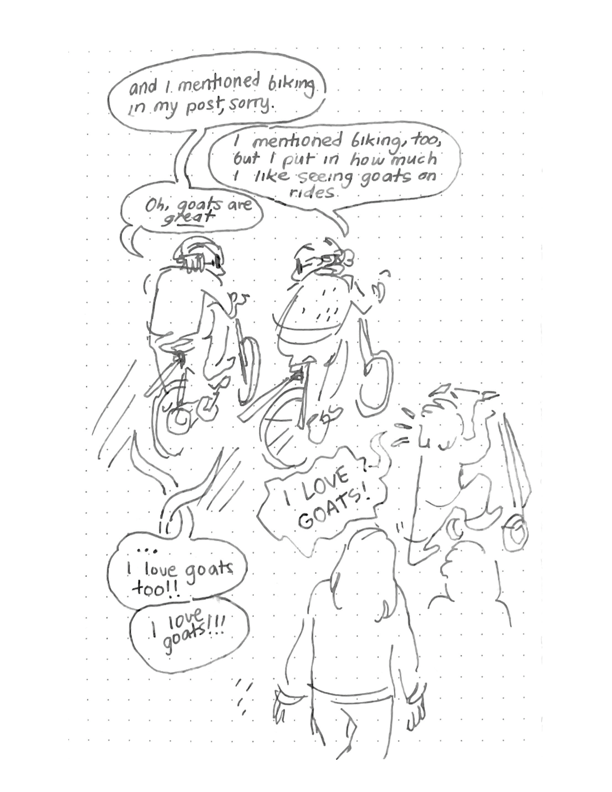 and I mentioned biking
in my post, sorry.
I mentioned biking, too,
but I put in how much
I like seeing goats on
rides.
Oh, goats are
great
I LOVE
GOATS!
...
I love goats
too!!
I love
goats!!!